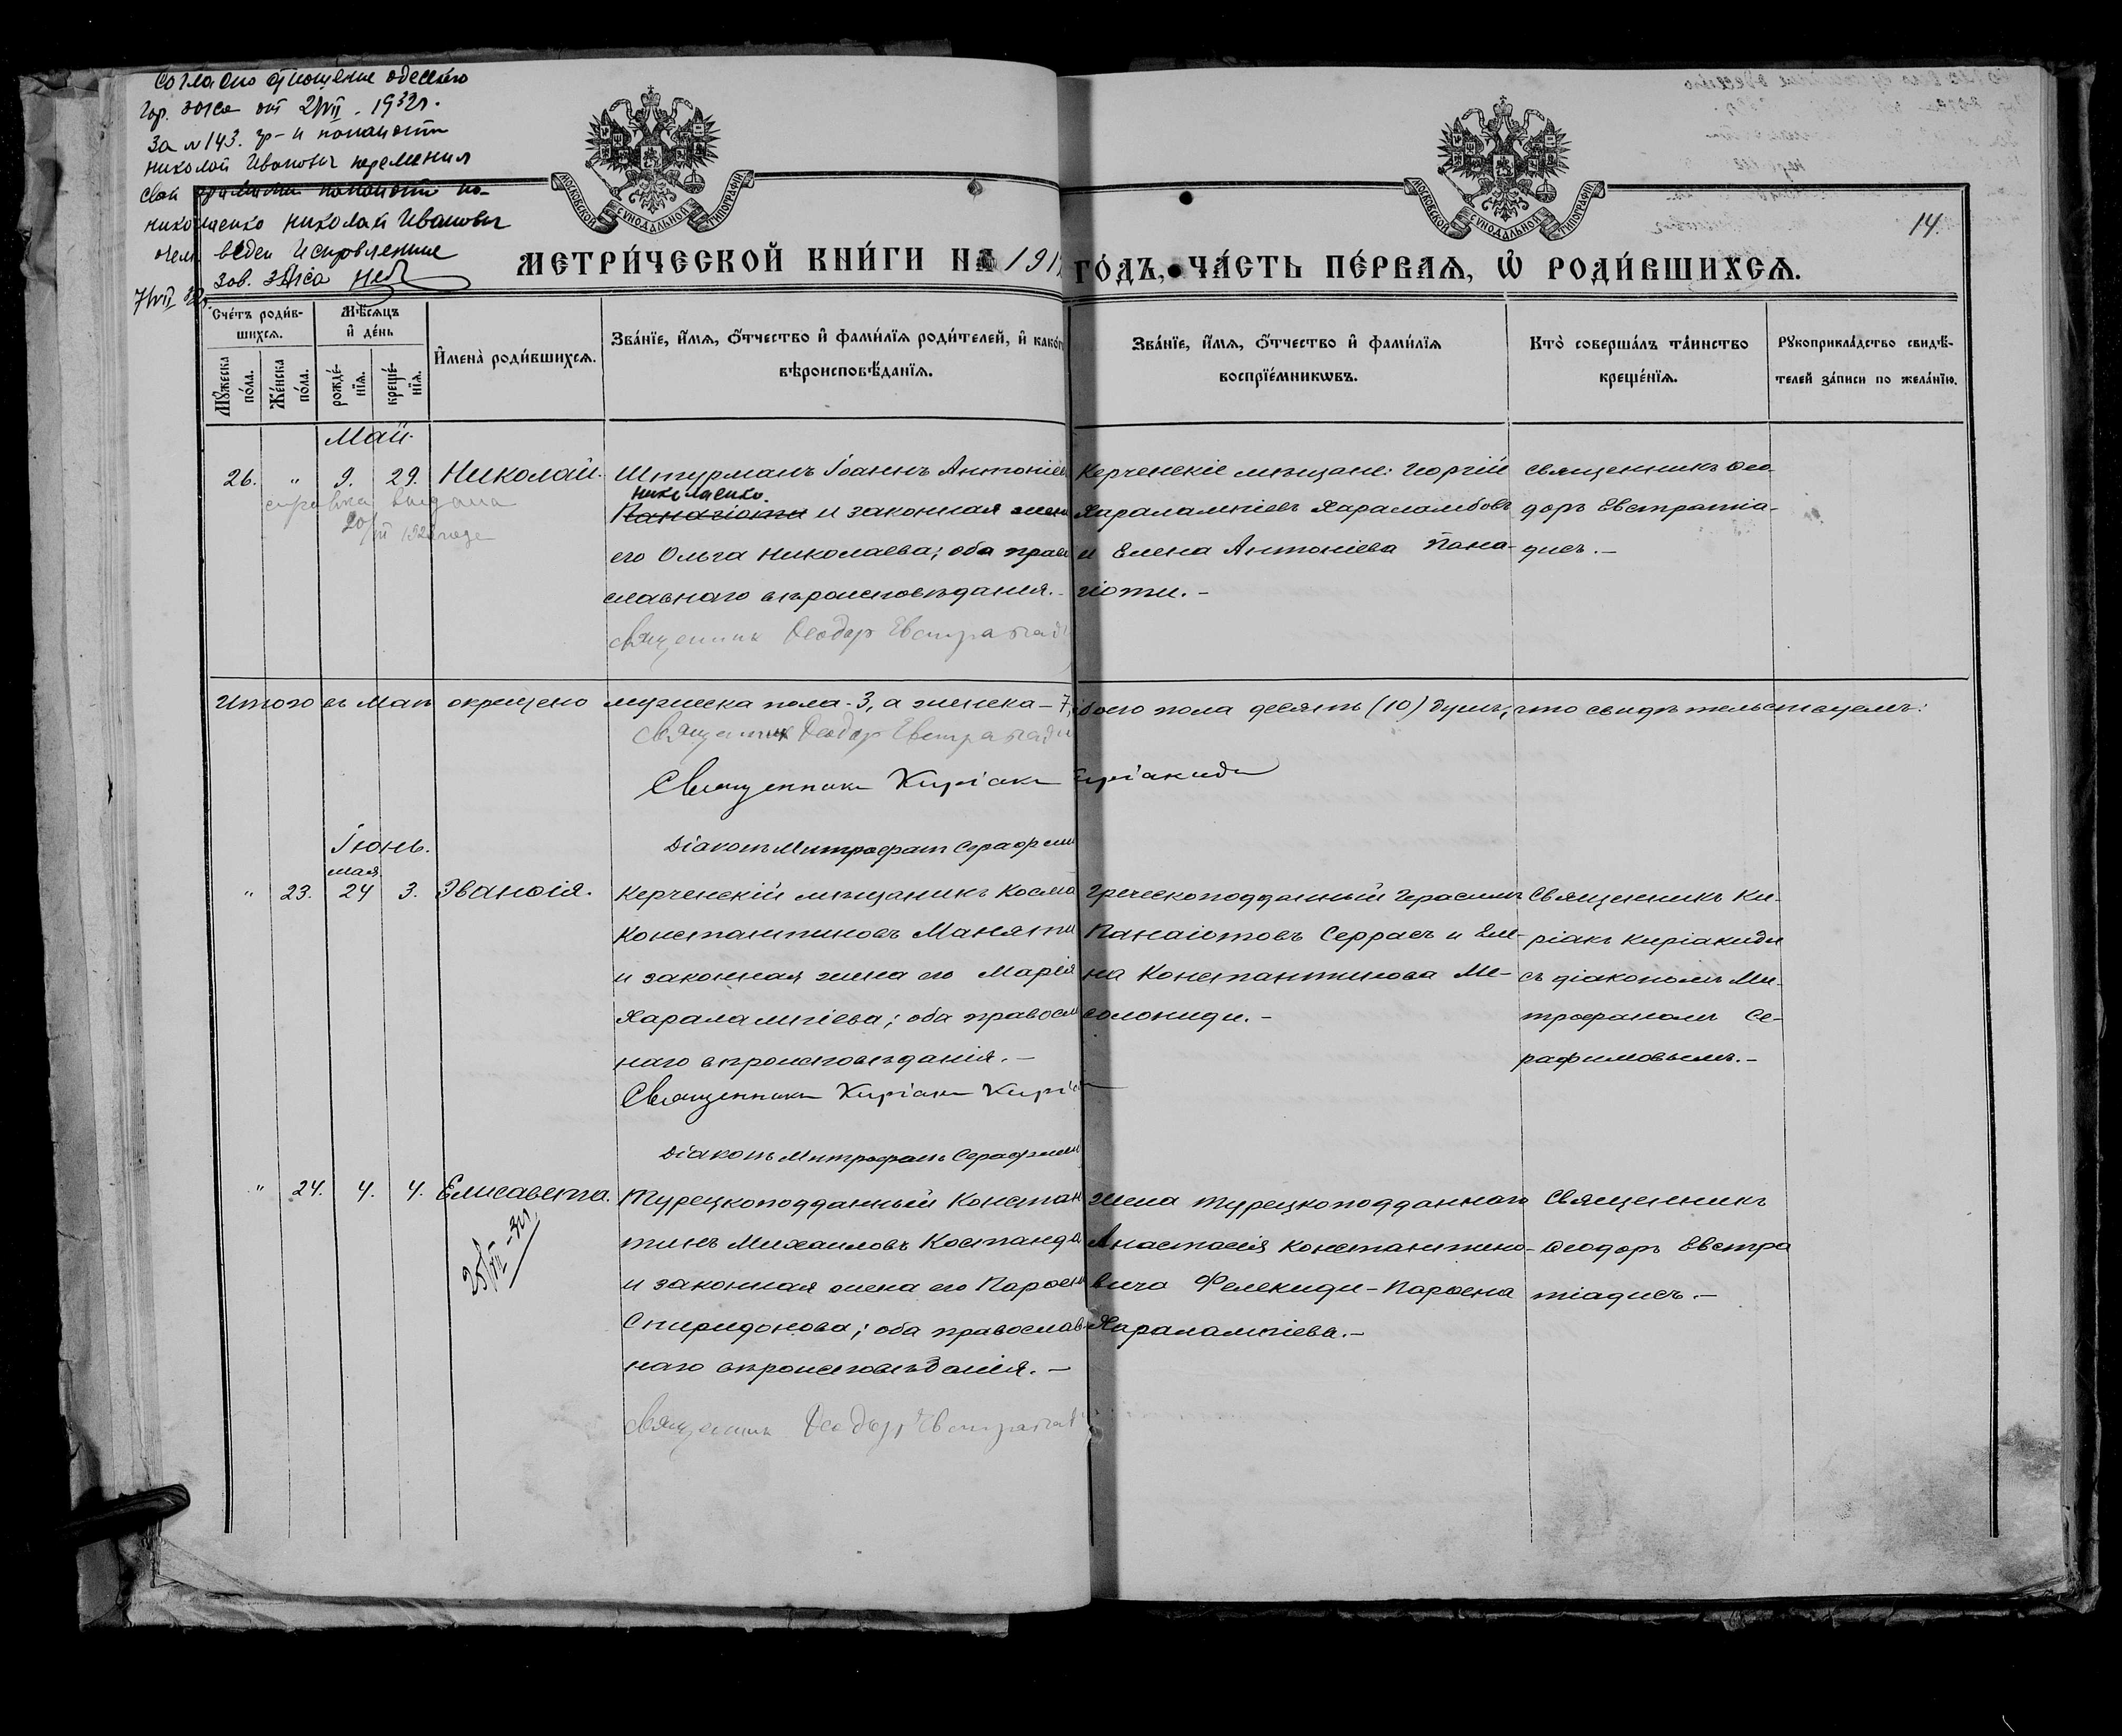 Согласно отношение одесского
Гор. загса от 2/VII - 1932г.
За №143. гр-н панаиоти
николай Иванович переменил
свой фамилии панаиоти на
николаенко николай Иванович
о чем веден исправление
Зав. загса
7/VII 32г.
МОСКОВСКОЙ СѴНОДАЛЬНОЙ ТИПОГРАФІИ
МОСКОВСКОЙ СѴНОДАЛЬНОЙ ТИПОГРАФІИ
14.
МЕТРИ́ЧЕСКОЙ КНИ́ГИ НА 191
ГО́ДЪ, ЧА́СТЬ ПЕ́РВАѦ, Ѡ҆ РОДИ́ВШИХСѦ.
Сче́тъ роди́в-
шихсѧ.
Мꙋ́жеска по́ла.
Же́нска по́ла.
Мѣ́сѧцъ
и҆ де́нь
рожде́-нїѧ.
креще́-нїѧ.
И҆мена̀ роди́вшихсѧ.
Зва́нїе, и҆́мѧ, ѻ҆́тчество и҆ фами́лїѧ роди́телей, и҆ како́гѡ
вѣроисповѣ́данїѧ.
Зва́нїе, и҆́мѧ, ѻ҆́тчество и҆ фами́лїѧ
воспрїе́мникѡвъ.
Кто̀ соверша́лъ та́инство
креще́нїѧ.
Рꙋкоприкла́дство свидѣ́-
телей за́писи по жела́нїю.
Май.
26. " 9. 29. Николай.
справка выдана
20/III 192 года
Штурманъ Іоаннъ Антоніев
николаенко.
Панаіоти и законная жена
его Ольга Николаева; оба право
славнаго вѣроисповѣданія.-
священник Ѳеодор Евстратиади
Керченскіе мѣщане: Георгій
Харалампіевъ Хараламбовъ
и Елена Антоніева Пана-
гіоти.-
священникъ Ѳео-
доръ Евстратіа-
дисъ.-
Итого въ Маѣ окрещено мужеска пола - 3, а женска - 7, обоего пола десять (10) душъ, что свидѣтельствуемъ:
Священник Ѳеодор Евстратиади
Священникъ Киріакъ Киріакиди
Діаконъ Митрофанъ Серафимов
Іюнь.
мая
" 23. 24 3. Эванѳія.
Керченскій мѣщанинъ Косма
Константиновъ Маняти
и законная жена его Марія
Харалампіева; оба православ
наго вѣроисповѣданія.-
Священникъ Киріакъ Киріа
Діаконъ Митрофанъ Серафимов
Греческоподданный Герасимъ
Панаіотовъ Серрасъ и Еле-
на Константинова Ме-
солониди.-
Священникъ Ки-
ріакъ Киріакиди
съ діакономъ Ми-
трофаномъ Се-
рафимовымъ.-
" 24. 4. 4. Елисавета.
Турецкоподданный Констан
тинъ Михаиловъ Костанда
и законная жена его Парѳена
Спиридонова; оба православ-
наго вѣроисповѣданія.-
священник Ѳеодор Евстратиад
жена турецкоподданнаго
Анастасія Константино-
вича Фелекиди - Парѳена
Харалампіева.-
Священникъ
Ѳеодоръ Евстра
тіадисъ.-